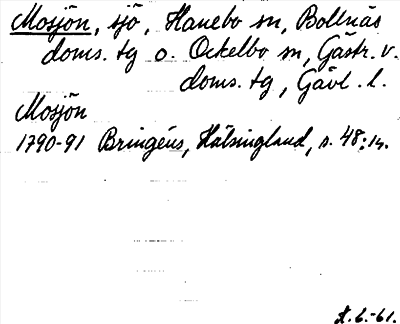 Mosjön, sjö, Hanebo sn, Bollnäs
doms. tg o. Ockelbo sn, Gästr. v.
doms. tg, Gävl. l.
Mosjön
1790-91 Bringéus, Hälsingland, s. 48:14.